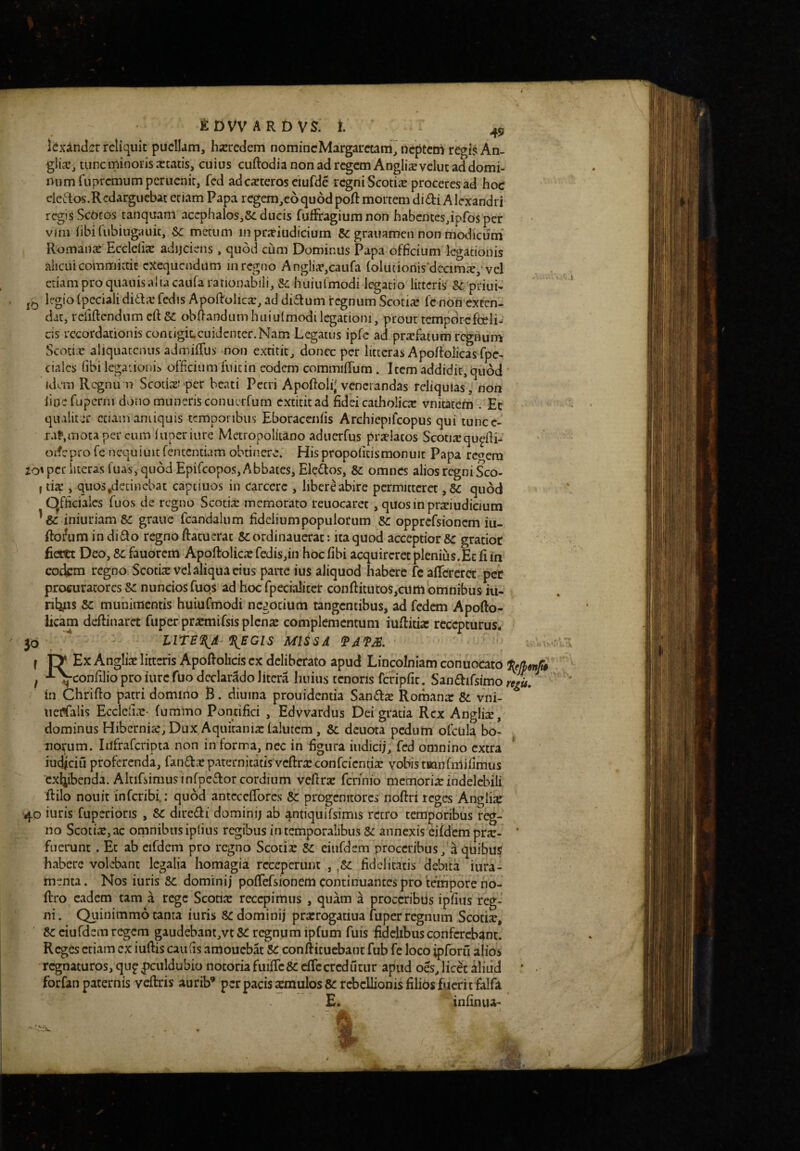 EDVVARDVS. I. 49
lexander reliquit puellam, hæredem nomine Margaretam, neptem regis An-
gliæ, tunc minoris ætatis, cuius custodia non ad regem Angliæ velut ad domi-
num supremum peruenit, sed ad cæteros eiusdē regni Scotiæ proceres ad hoc
electos. Redarguebat etiam Papa regem, eò quòd post mortem dicti Alexandri
regis Scotos tanquam acephalos, & ducis suffragium non habentes, ipsos per
vim sibi subiugauit, & metum in præiudicium & grauamen non modicum
Romanæ Ecclesiæ adijciens, quòd cùm Dominus Papa officium legationis
alicui committit exequendum in regno Angliæ, causa solutionis decimæ, vel
etiam pro quauis alia causa rationabili, & huiusmodi legatio litteris & priui-
10 legio speciali dictæ sedis Apostolicæ, ad dictum regnum Scotiæ se non exten-
dat, resistendum est & obstandum huiusmodi legationi, prout tempore fœli-
cis recordationis contigit euidenter. Nam Legatus ipse ad præfatum regnum
Scotiæ aliquatenus admissus non extitit, donec per litteras Apostolicas spe-
ciales sibi legationis officium fuit in eodem commissum. Item addidit, quòd
idem Regnum Scotiæ per beati Petri Apostoli venerandas reliquias, non
sine superni dono muneris conuersum extitit ad fidei catholicæ vnitatem. Et
qualiter etiam antiquis temporibus Eboracensis Archiepiscopus qui tunc e-
rat, mota per eum super iure Metropolitano aduersus prælatos Scotiæ quæsti-
one pro se nequiuit sententiam obtinere. His propositis monuit Papa regem
20 per literas suas, quòd Episcopos, Abbates, Electos, & omnes alios regni Sco-
tiæ, quos detinebat captiuos in carcere, liberè abire permitteret, & quòd
Officiales suos de regno Scotiæ memorato reuocaret, quos in præiudicium
& iniuriam & graue scandalum fidelium populorum & oppressionem iu-
storum in dicto regno statuerat & ordinauerat: ita quod acceptior & gratior
fieret Deo, & fauorem Apostolicæ sedis, in hoc sibi acquireret pleniùs. Et si in
eodem regno Scotiæ vel aliqua eius parte ius aliquod habere se assereret per
procuratores & nuncios suos ad hoc specialiter constitutos, cum omnibus iu-
ribus & munimentis huiusmodi negotium tangentibus, ad sedem Aposto-
licam destinaret super præmissis plenæ complementum iustitiæ recepturus.
30 LITERA REGIS MISSA PAPÆ.
REx Angliæ litteris Apostolicis ex deliberato apud Lincolniam conuocato Responsio
consilio pro iure suo declarādo literā huius tenoris scripsit. Sanctissimo regis.
in Christo patri domino B. diuina prouidentia Sanctæ Romanæ & vni-
uersalis Ecclesiæ summo Pontifici, Edvvardus Dei gratia Rex Angliæ,
dominus Hiberniæ, Dux Aquitaniæ salutem, & deuota pedum oscula bo-
norum. Infrascripta non in forma, nec in figura iudicij, sed omnino extra
iudiciū proferenda, sanctæ paternitatis vestræ conscientiæ vobis transmisimus
exhibenda. Altissimus inspector cordium vestræ scrinio memoriæ indelebili
stilo nouit inscribi: quòd antecessores & progenitores nostri reges Angliæ
40 iuris superioris, & directi dominij ab antiquissimis retro temporibus reg-
no Scotiæ, ac omnibus ipsius regibus in temporalibus & annexis eisdem præ-
fuerunt. Et ab eisdem pro regno Scotiæ & eiusdem proceribus, à quibus
habere volebant legalia homagia receperunt, & fidelitatis debita iura-
menta. Nos iuris & dominij possessionem continuantes pro tempore no-
stro eadem tam à rege Scotiæ recepimus, quàm à proceribus ipsius reg-
ni. Quinimmò tanta iuris & dominij prærogatiua super regnum Scotiæ,
& eiusdem regem gaudebant, vt & regnum ipsum suis fidelibus conferebant.
Reges etiam ex iustis causis amouebāt & constituebant sub se loco ipsorū alios
regnaturos, quę ꝓculdubio notoria fuisse & esse credūtur apud oēs, licèt aliud
forsan paternis vestris auribꝰ per pacis æmulos & rebellionis filios fuerit falsa
E. insinua-